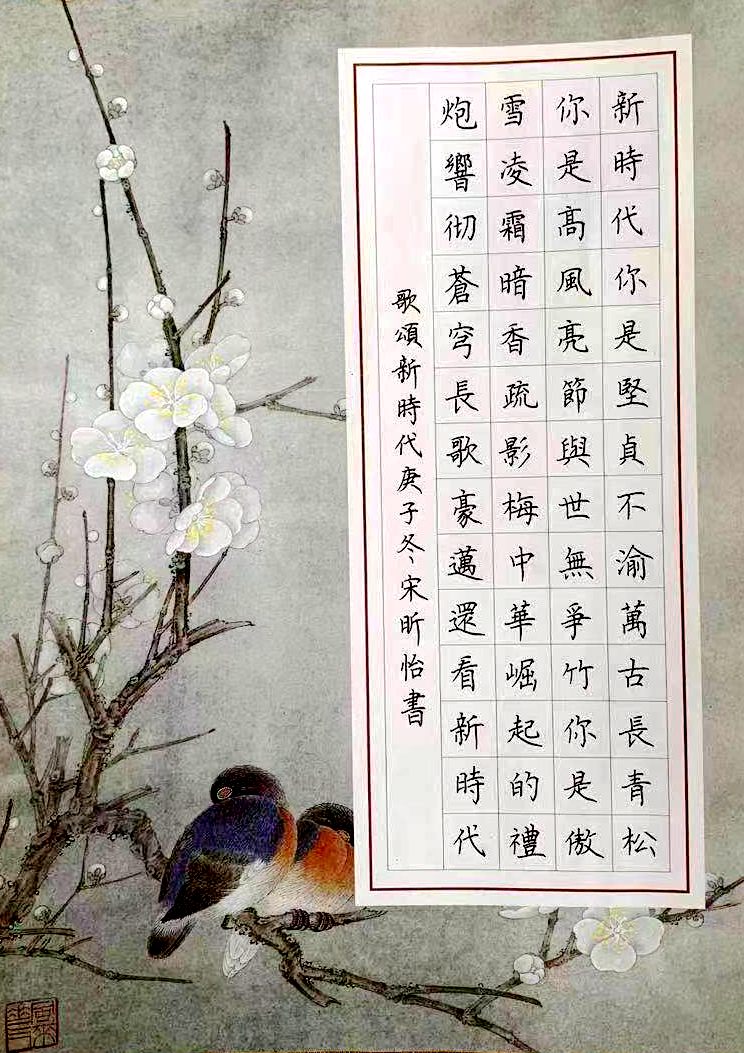 新時代你是堅貞不渝萬古長青松
你是高風亮節與世無爭竹你是傲
雪凌霜暗香疏影梅中華崛起的禮
炮響彻蒼穹長歌豪邁還看新時代
歌頌新時代庚子冬宋昕怡書